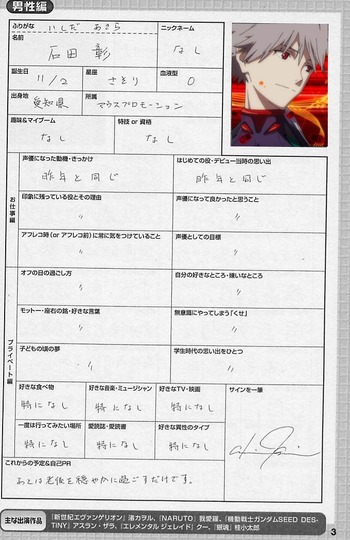 男性編
ふりがな いしだ あきら
ニックネーム
名前 石田 彰
なし
誕生日 11/2
星座 さそり
血液型 O
出身地 愛知県
所属 マウスプロモーション
趣味&マイブーム
なし
特技 or 資格
なし
お仕事編
声優になった動機・きっかけ
昨年と同じ
はじめての役・デビュー当時の思い出
昨年と同じ
印象に残っている役とその理由
〃
声優になって良かったと思うこと
〃
アフレコ時(or アフレコ前)に常に気をつけていること
〃
声優としての目標
〃
プライベート編
オフの日の過ごし方
〃
自分の好きなところ・嫌いなところ
〃
モットー・座右の銘・好きな言葉
〃
無意識にやってしまう「くせ」
〃
子どもの頃の夢
〃
学生時代の思い出をひとつ
〃
好きな食べ物
特になし
好きな音楽・ミュージシャン
特になし
好きなTV・映画
特になし
サインを一筆
一度は行ってみたい場所
特になし
愛読誌・愛読書
特になし
好きな異性のタイプ
特になし
これからの予定&自己PR
あとは老後を穏やかに過ごすだけです。
主な出演作品
『新世紀エヴァンゲリオン』渚カヲル、『NARUTO』我愛羅、『機動戦士ガンダムSEED DES-
TINY』アスラン・ザラ、『エレメンタル ジェレイド』クー、『銀魂』桂小太郎
3